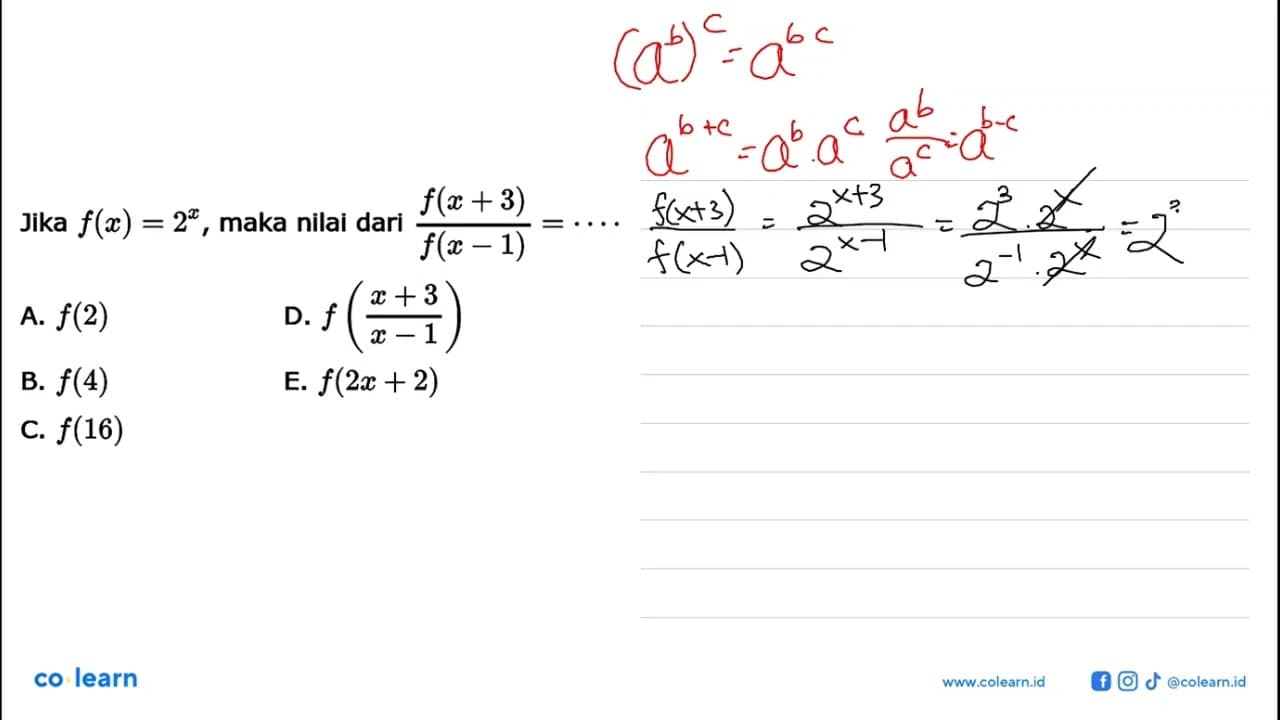 (a^b)^c = a^{bc}
a^{b+c} = a^b . a^c  a^b/a^c = a^{b-c}
Jika f(x) = 2^x, maka nilai dari f(x + 3)/f(x − 1) = ....
f(x+3)/f(x-1) = 2^{x+3}/2^{x-1} = 2^3 . 2^x/2^{-1} . 2^x = 2^3
A. f(2)
D. f((x + 3)/(x − 1))
B. f(4)
E. f(2x + 2)
C. f(16)
co learn
www.colearn.id
@colearn.id